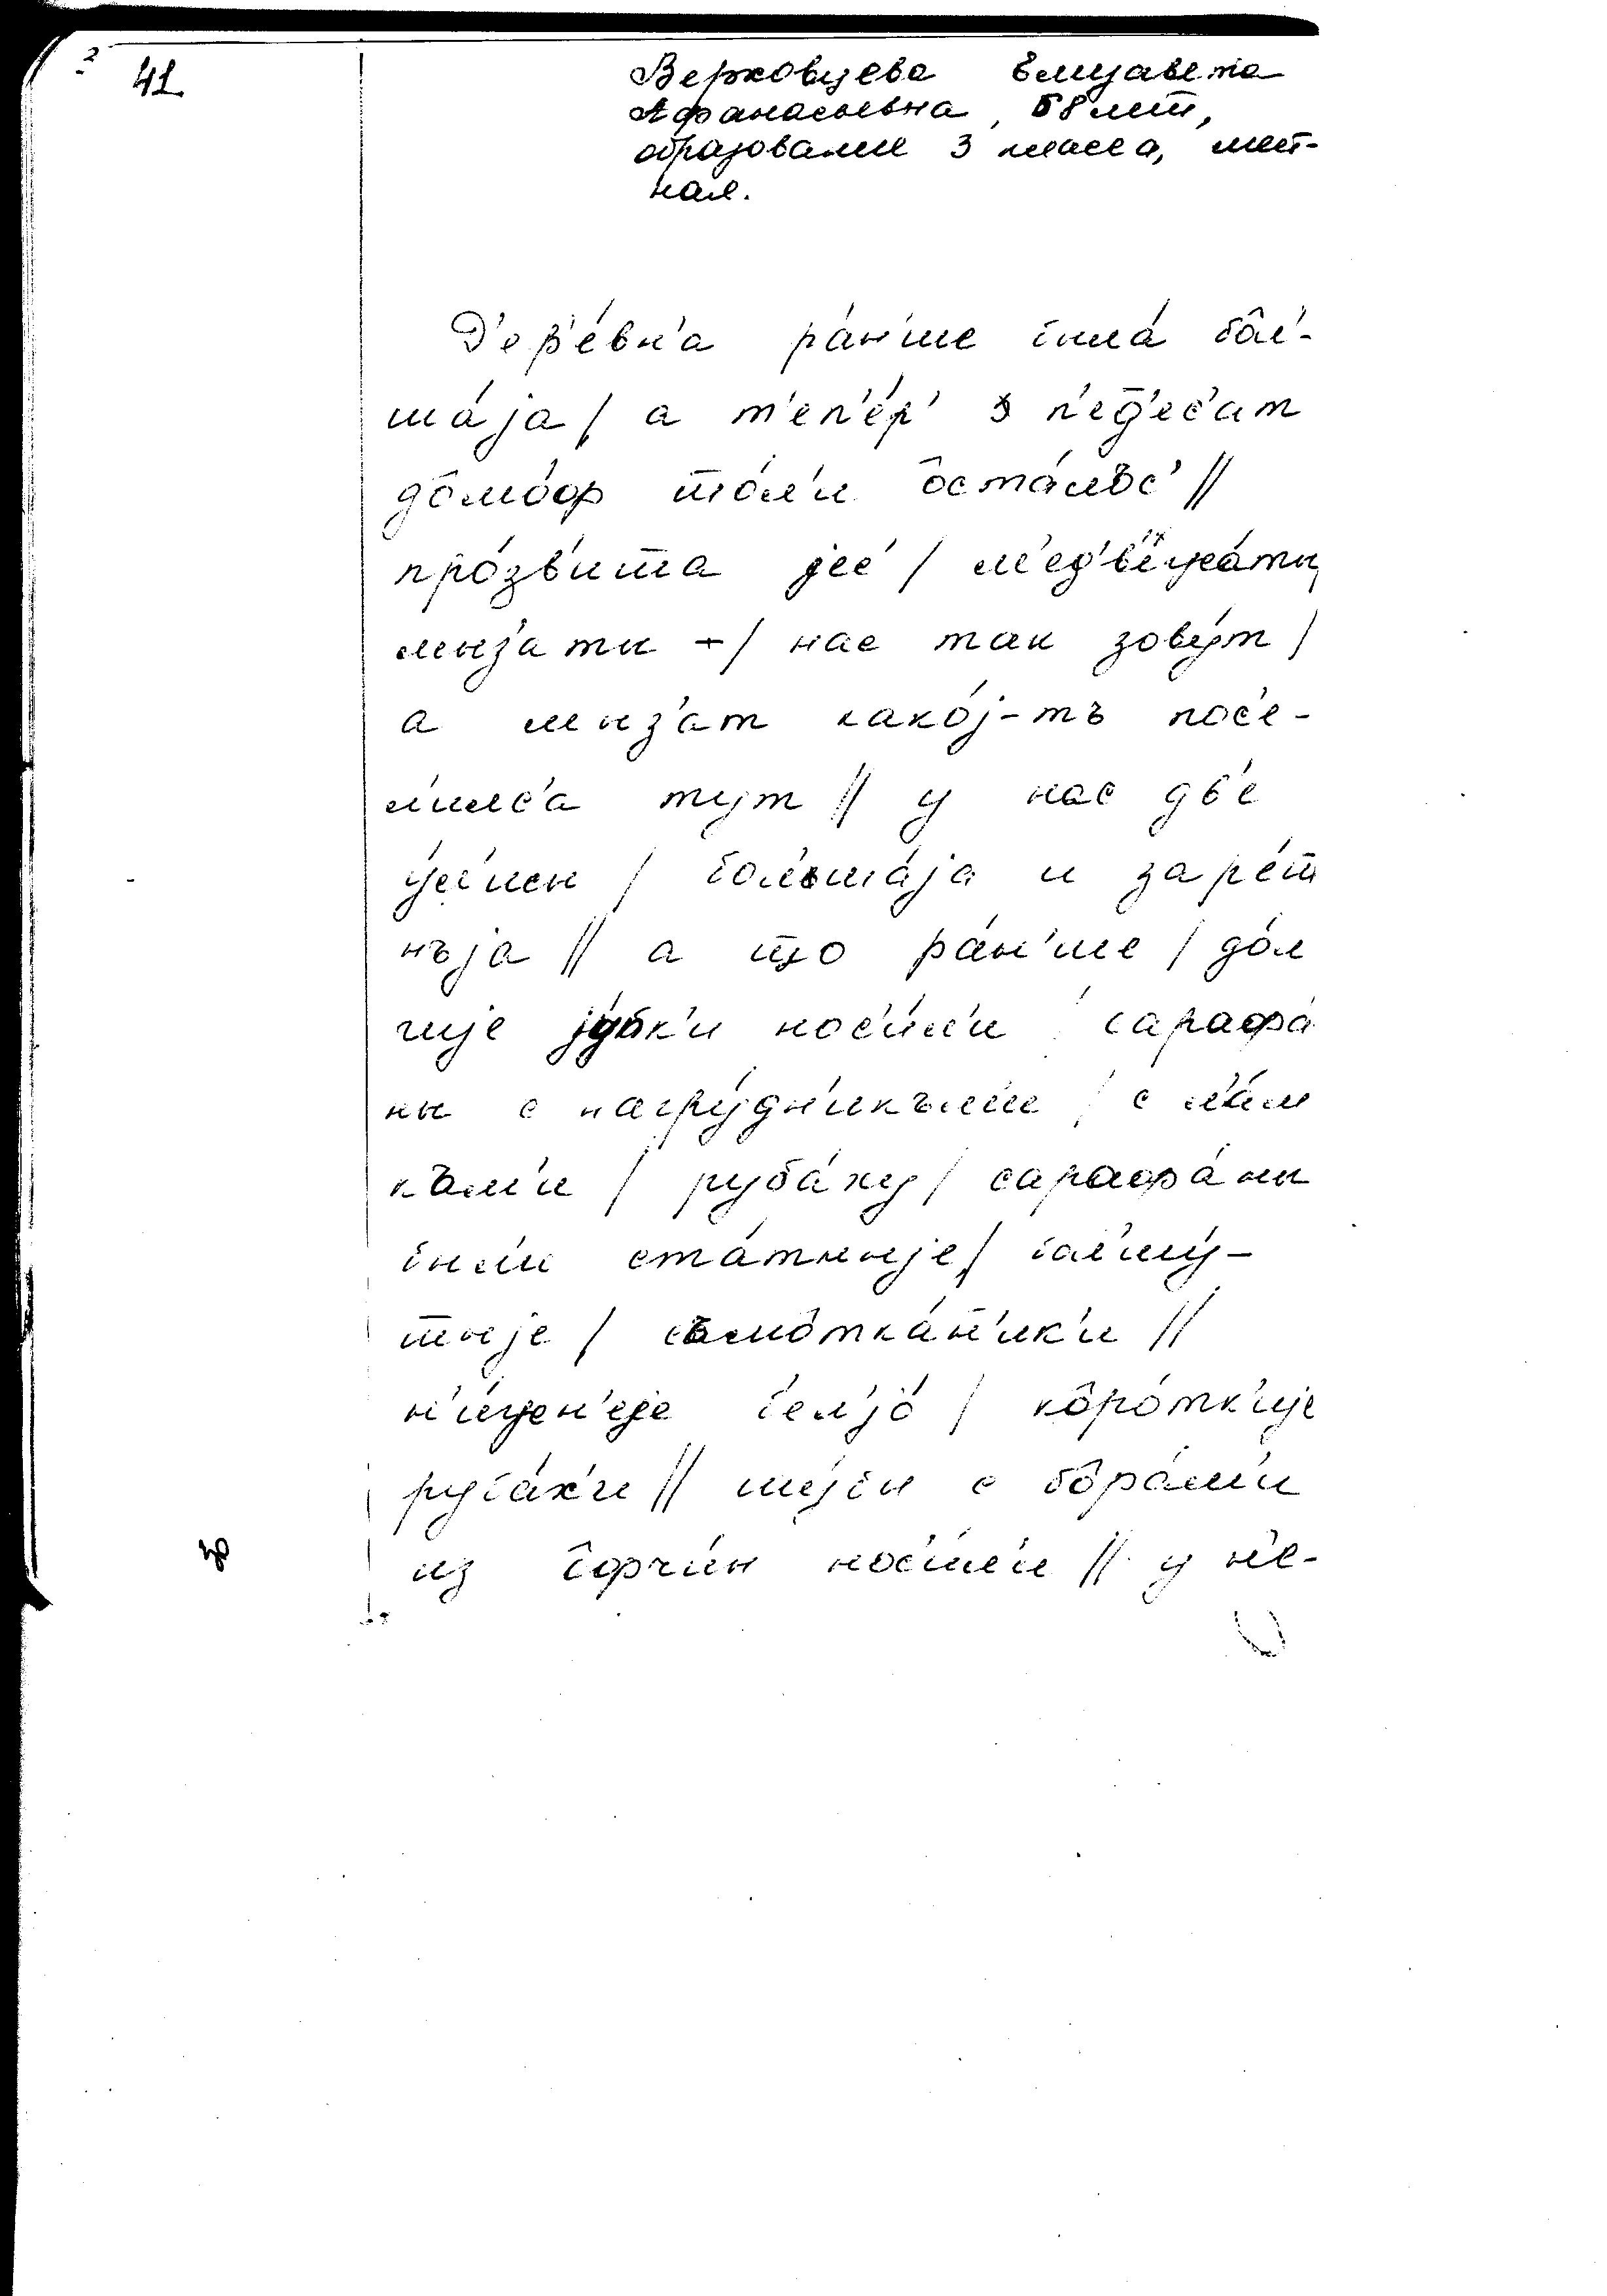 41
Верховцева Елизавета
Афанасьевна, 58 лет,
образование 3 класса, мест-
ная.
Д'ер'е́вн'а ра́н'ше была́ бôл'-
ша́jа / а т'еп'е́р' з п'ед'ес'ат
дôмо́ф то́л'и ôста́лъс' //
про́зв'ишта jеé / м'едв'ежа́ты
лыз'аты / нас так зову́т /
а лыз'ат како́j-тъ пос'е-
л'илс'а тут // у нас дв'е
у́л'ицы / бол'ша́jа и зар'е́ч
нъjа // а що ра́н'ше / до́л
гиjе jу́пк'и нос'и́л'и / сарафа́
ны с нагру́дн'икъм'и / с л'а́м
към'и / руба́ху / сарафа́ны
были ста́тныjе / бал'шу́-
шчыjе / съмôтка́н'ик'и //
н'и́жн'еjе бел'jо́ / кôро́тк'иjе
руба́х'и // шу́бы с бôра́м'и
из ôфчи́н нос'и́л'и // у н'е-